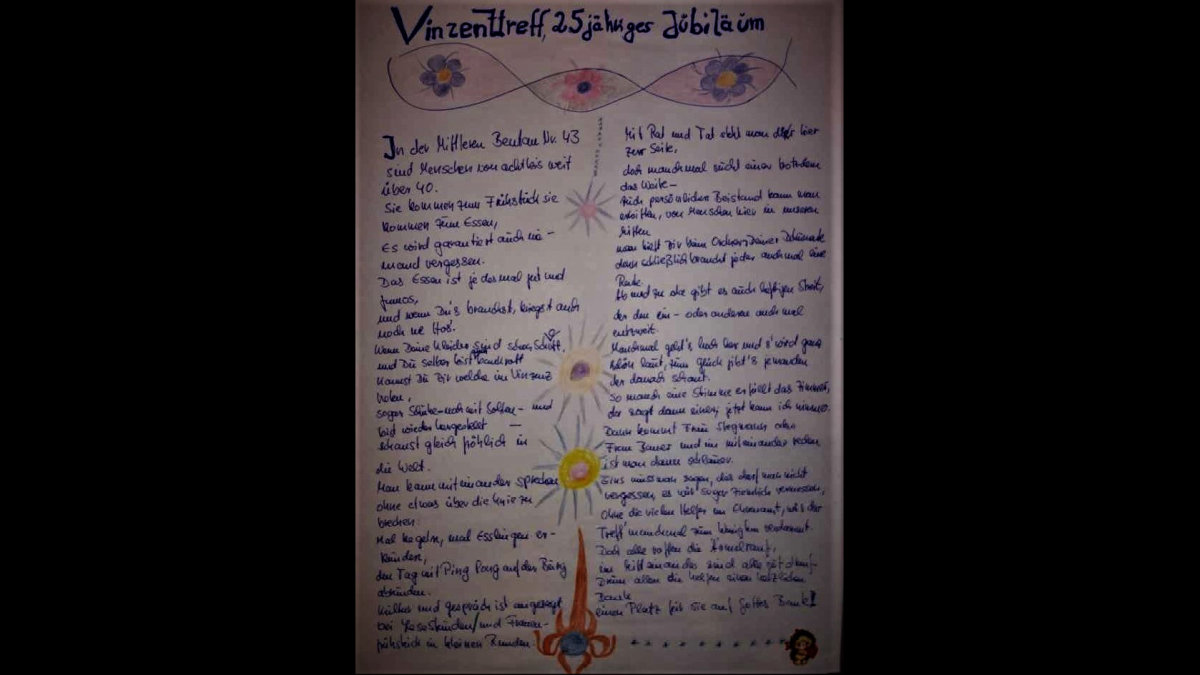 Vinzenztreff, 25 jähriges Jubiläum
In der Mittleren Beutau Nr. 43
sind Menschen von acht bis weit
über 40.
Sie kommen zum Frühstück sie
kommen zum Essen,
Es wird garantiert auch nie-
mand vergessen.
Das Essen ist jedesmal gut und
und wenn Du's brauchst, kriegst auch
noch ne Hos'.
Wenn Deine Kleider sind schon Schrott,
und Du selber bist
kannst Du Dir welche im Vinzenz
holen,
sogar Schuhe noch mit Sohlen - und
bist wieder hergestellt —
schaust gleich fröhlich in
die Welt.
Man kann miteinander sprechen
ohne etwas über die Knie zu
brechen.
Mal kegeln, mal Esslingen er-
kunden,
den Tag mit Ping Pong auf der Burg
abrunden.
Kultur und gespräch ist angesagt
bei Lesestunden/und Frauen-
frühstück in kleinen Runden.
Mit Rat und Tat steht man Dir hier
zur Seite,
doch manchmal sucht einer trotzdem
das Weite —
Auch persönlicher Beistand kann man
erbitten, von Menschen hier in unseren
Mitten
man hilft Dir beim Ordnen Deiner Dokumente
denn schließlich braucht jeder auch mal eine
Rente.
Ab und zu da gibt es auch heftigen Streit,
der den ein- oder anderen auch mal
entzweit.
Manchmal geht's hoch her und s'wird ganz
schön laut, zum glück gibt's jemanden
der danach schaut.
So manch eine Stimme erfüllt das Zimmer,
der sagt dann einer, jetzt kann ich nimmer.
Dann kommt Frau Stegmann oder
Frau Bauer und im miteinander reden
ist man dann schlauer.
Eins muss man sagen, das darf man nicht
vergessen, es wär sogar ziemlich vermessen,
Ohne die vielen Helfer im Ehrenamt, wär der
Treff manchmal zum
Doch alle raffen die Ärmel rauf,
im Miteinander sind alle gut drauf-
Drum allen die helfen einen herzlichen
Dank
einen Platz für sie auf Gottes Bank!